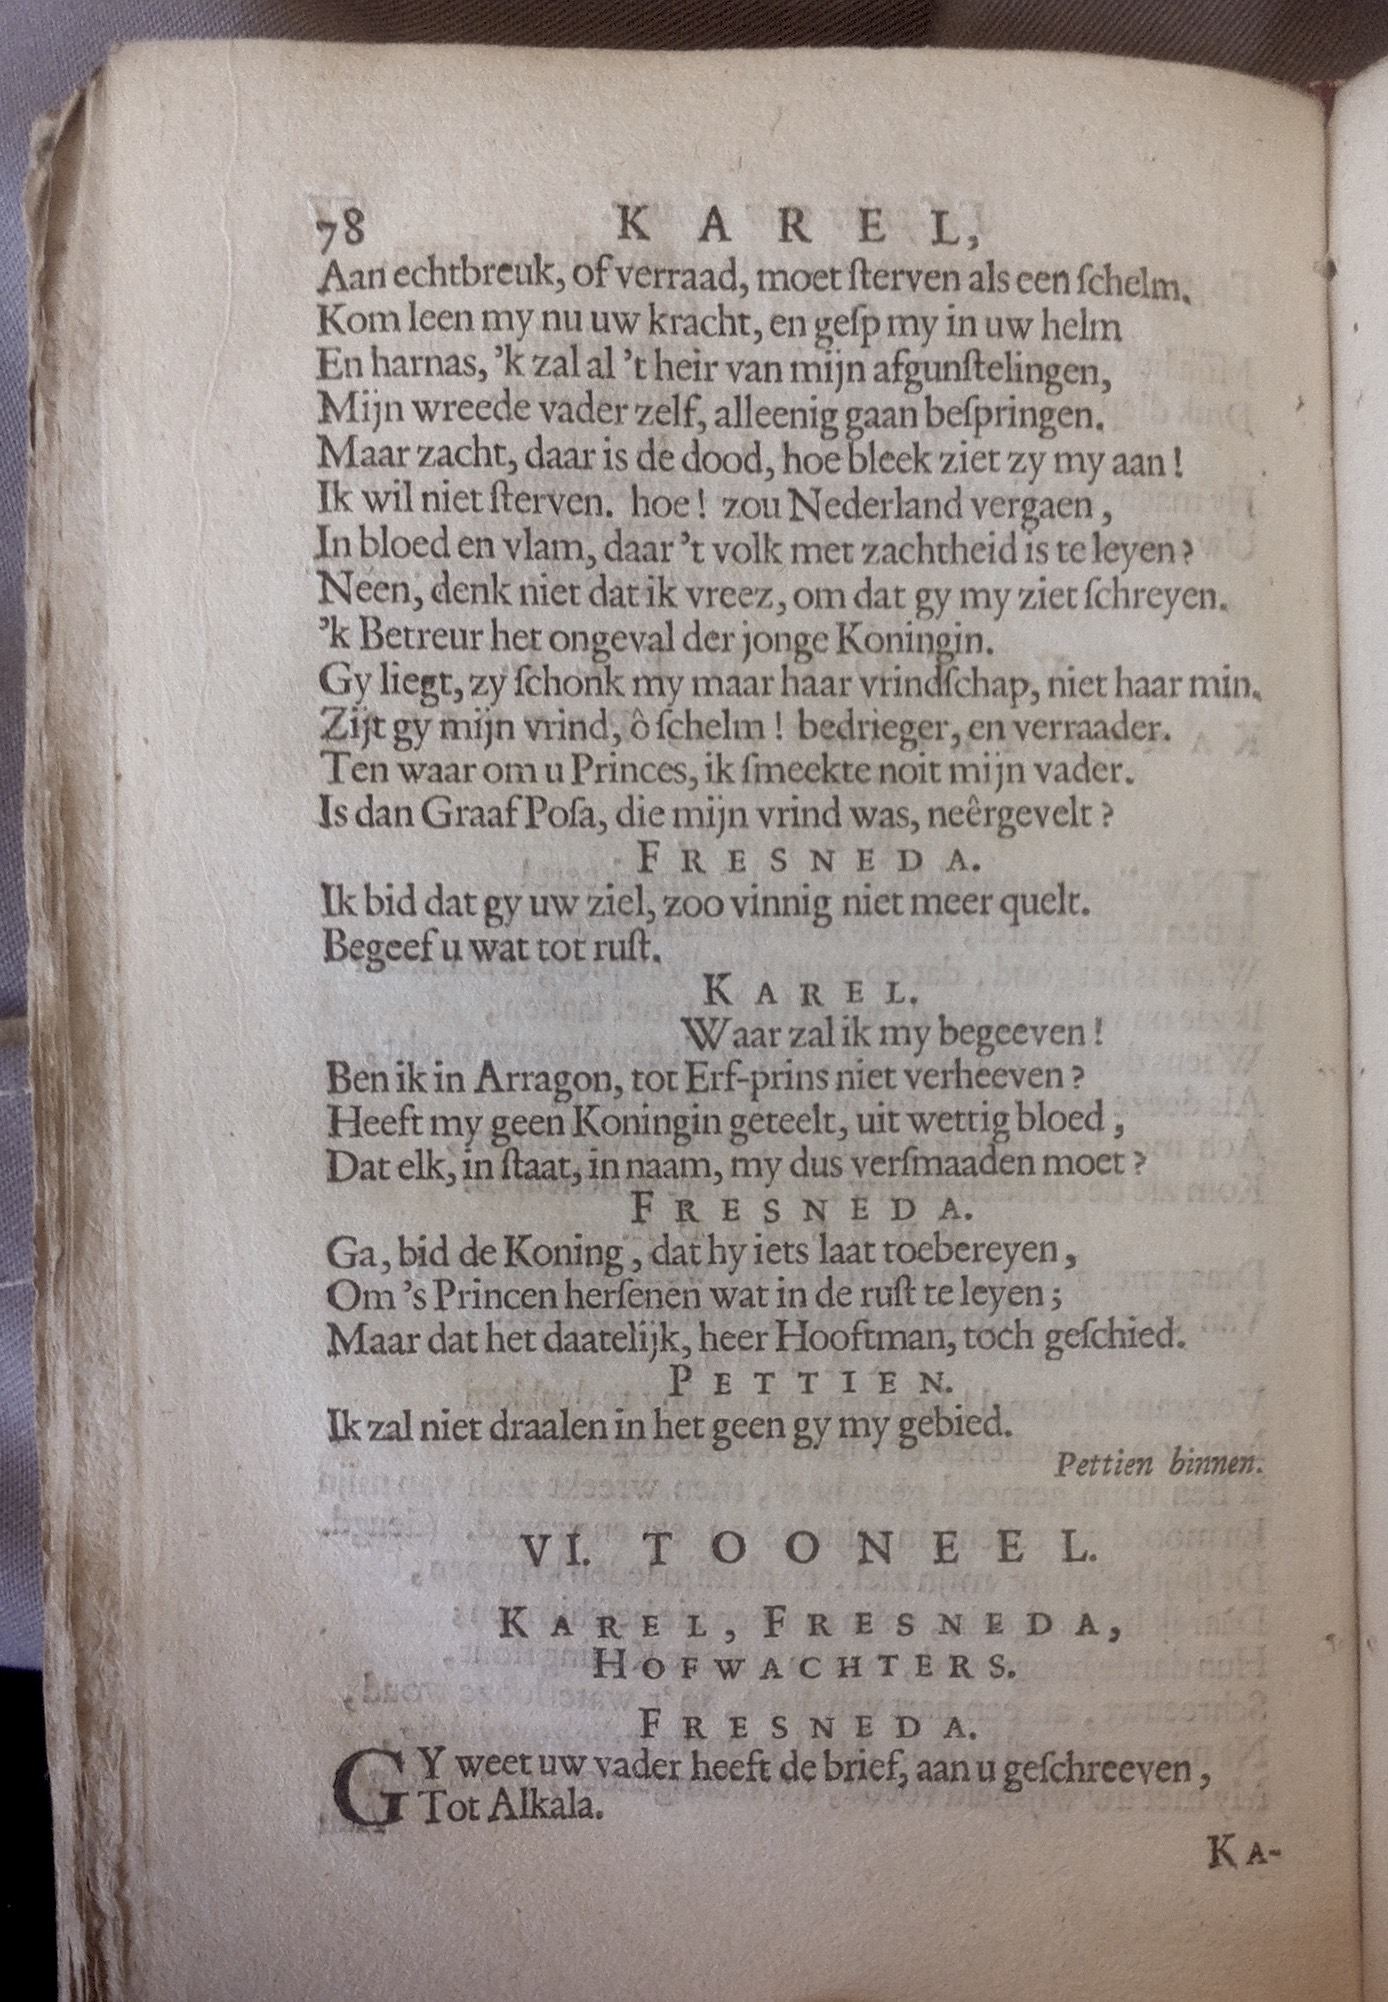 78 KAREL,
Aan echtbreuk, of verraad, moet ſterven als een ſchelm.
Kom leen my nu uw kracht, en geſp my in uw helm
En harnas, ’k zal al ’t heir van mijn afgunſtelingen,
Mijn wreede vader zelf, alleenig gaan beſpringen.
Maar zacht, daar is de dood, hoe bleek ziet zy my aan!
Ik wil niet ſterven. hoe! zou Nederland vergaen,
In bloed en vlam, daar ’t volk met zachtheid is te leyen?
Neen, denk niet dat ik vreez, om dat gy my ziet ſchreyen.
’k Betreur het ongeval der jonge Koningin.
Gy liegt, zy ſchonk my maar haar vrindſchap, niet haar min.
Zijt gy mijn vrind, ô ſchelm! bedrieger, en verraader.
Ten waar om u Princes, ik ſmeekte noit mijn vader.
Is dan Graaf Poſa, die mijn vrind was, neêrgevelt?
FRESNEDA.
Ik bid dat gy uw ziel, zoo vinnig niet meer quelt.
Begeef u wat tot ruſt.
KAREL.
Waar zal ik my begeeven!
Ben ik in Arragon, tot Erf-prins niet verheeven?
Heeft my geen Koningin geteelt, uit wettig bloed,
Dat elk, in ſtaat, in naam, my dus verſmaaden moet?
FRESNEDA.
Ga, bid de Koning, dat hy iets laat toebereyen,
Om ’s Princen herſenen wat in de ruſt te leyen;
Maar dat het daatelijk, heer Hooftman, toch geſchied.
PETTIEN.
Ik zal niet draalen in het geen gy my gebied.
Pettien binnen.
VI. TOONEEL.
KAREL, FRESNEDA,
HOFWACHTERS.
FRESNEDA.
GY weet uw vader heeft de brief, aan u geſchreeven,
Tot Alkala.
KA-